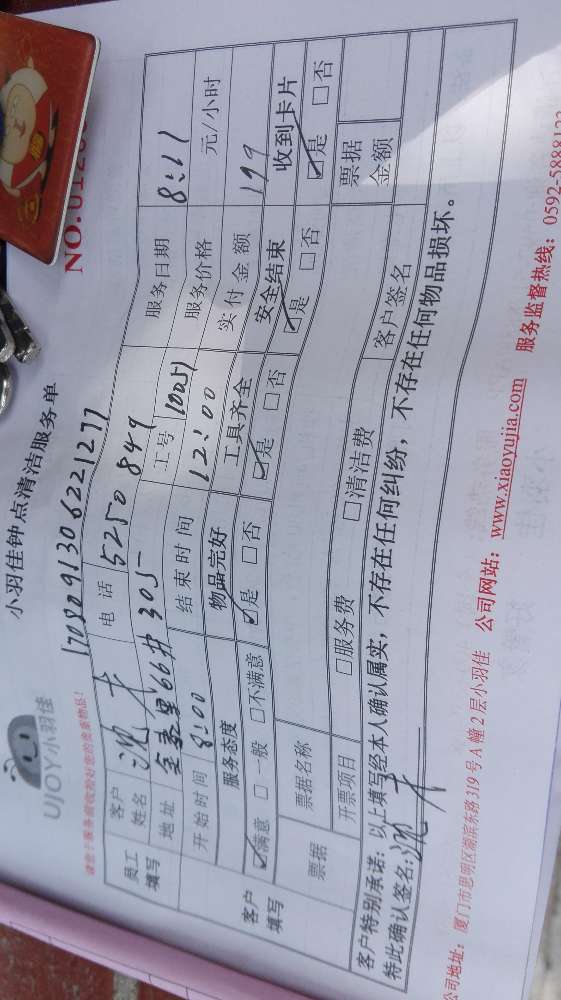 UJOY小羽佳
小羽佳钟点清洁服务单
1708091306221277
员工填写
客户姓名
沈
电话
5250849
服务日期
8:11
地址
66# 305
工号
10051
服务价格
元/小时
开始时间
8:00
结束时间
12:00
实付金额
199
客户填写
服务态度
物品完好
工具齐全
安全结束
收到卡片
☑满意 □一般 □不满意
☑是 □否
☑是 □否
☑是 □否
☑是 □否
票据
票据名称
票据金额
开票项目
□服务费
□清洁费
客户签名
客户特别承诺:以上填写经本人确认属实,不存在任何纠纷,不存在任何物品损坏。
特此确认签名:沈
公司地址:厦门市思明区湖滨东路319号A幢2层小羽佳 公司网站:www.xiaoyujia.com 服务监督热线:0592-5888123